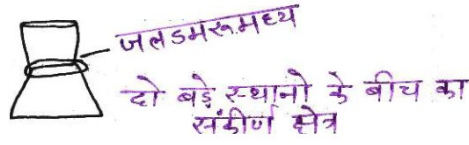 जलडमरूमध्य
दो बड़े स्थानो के बीच का
संकीर्ण क्षेत्र